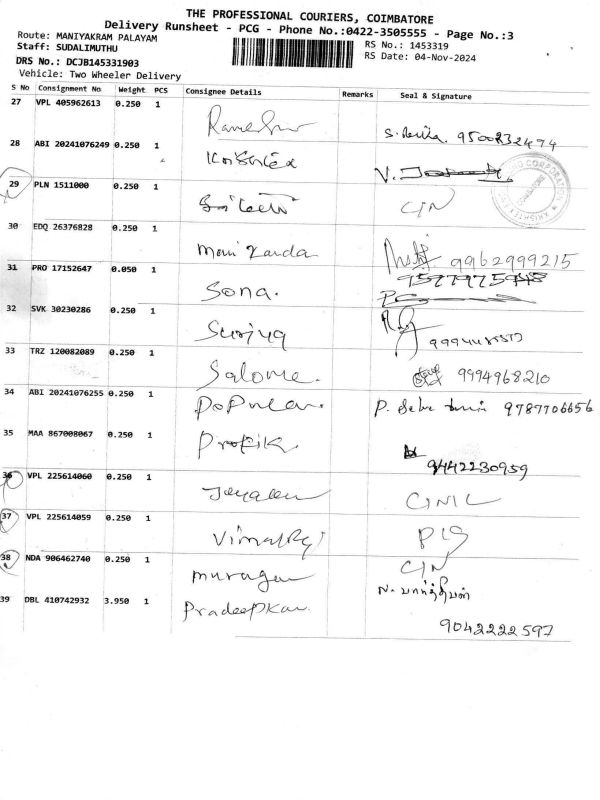 THE PROFESSIONAL COURIERS, COIMBATORE
Delivery Runsheet - PCG - Phone No.:0422-3505555 - Page No.:3
Route: MANIYAKRAM PALAYAM
RS No.: 1453319
Staff: SUDALIMUTHU
RS Date: 04-Nov-2024
DRS No.: DCJB145331903
Vehicle: Two Wheeler Delivery
S No Consignment No Weight PCS Consignee Details Remarks Seal & Signature
27 VPL 405962613 0.250 1
9500832494
28 ABI 20241076249 0.250 1
V.
29 PLN 1511000 0.250 1
30 EDQ 26376828 0.250 1
Mani
9962999215
31 PRO 17152647 0.050 1
Sona.
32 SVK 30230286 0.250 1
Suriya
33 TRZ 120082089 0.250 1
Salome. 9994968210
34 ABI 20241076255 0.250 1
Popular. P. 9787706656
35 MAA 867008067 0.250 1
9442230959
36 VPL 225614060 0.250 1
37 VPL 225614059 0.250 1
Vimalraj
38 NDA 906462740 0.250 1
murugan
39 DBL 410742932 3.950 1
N. பார்த்திபன்
9042222597